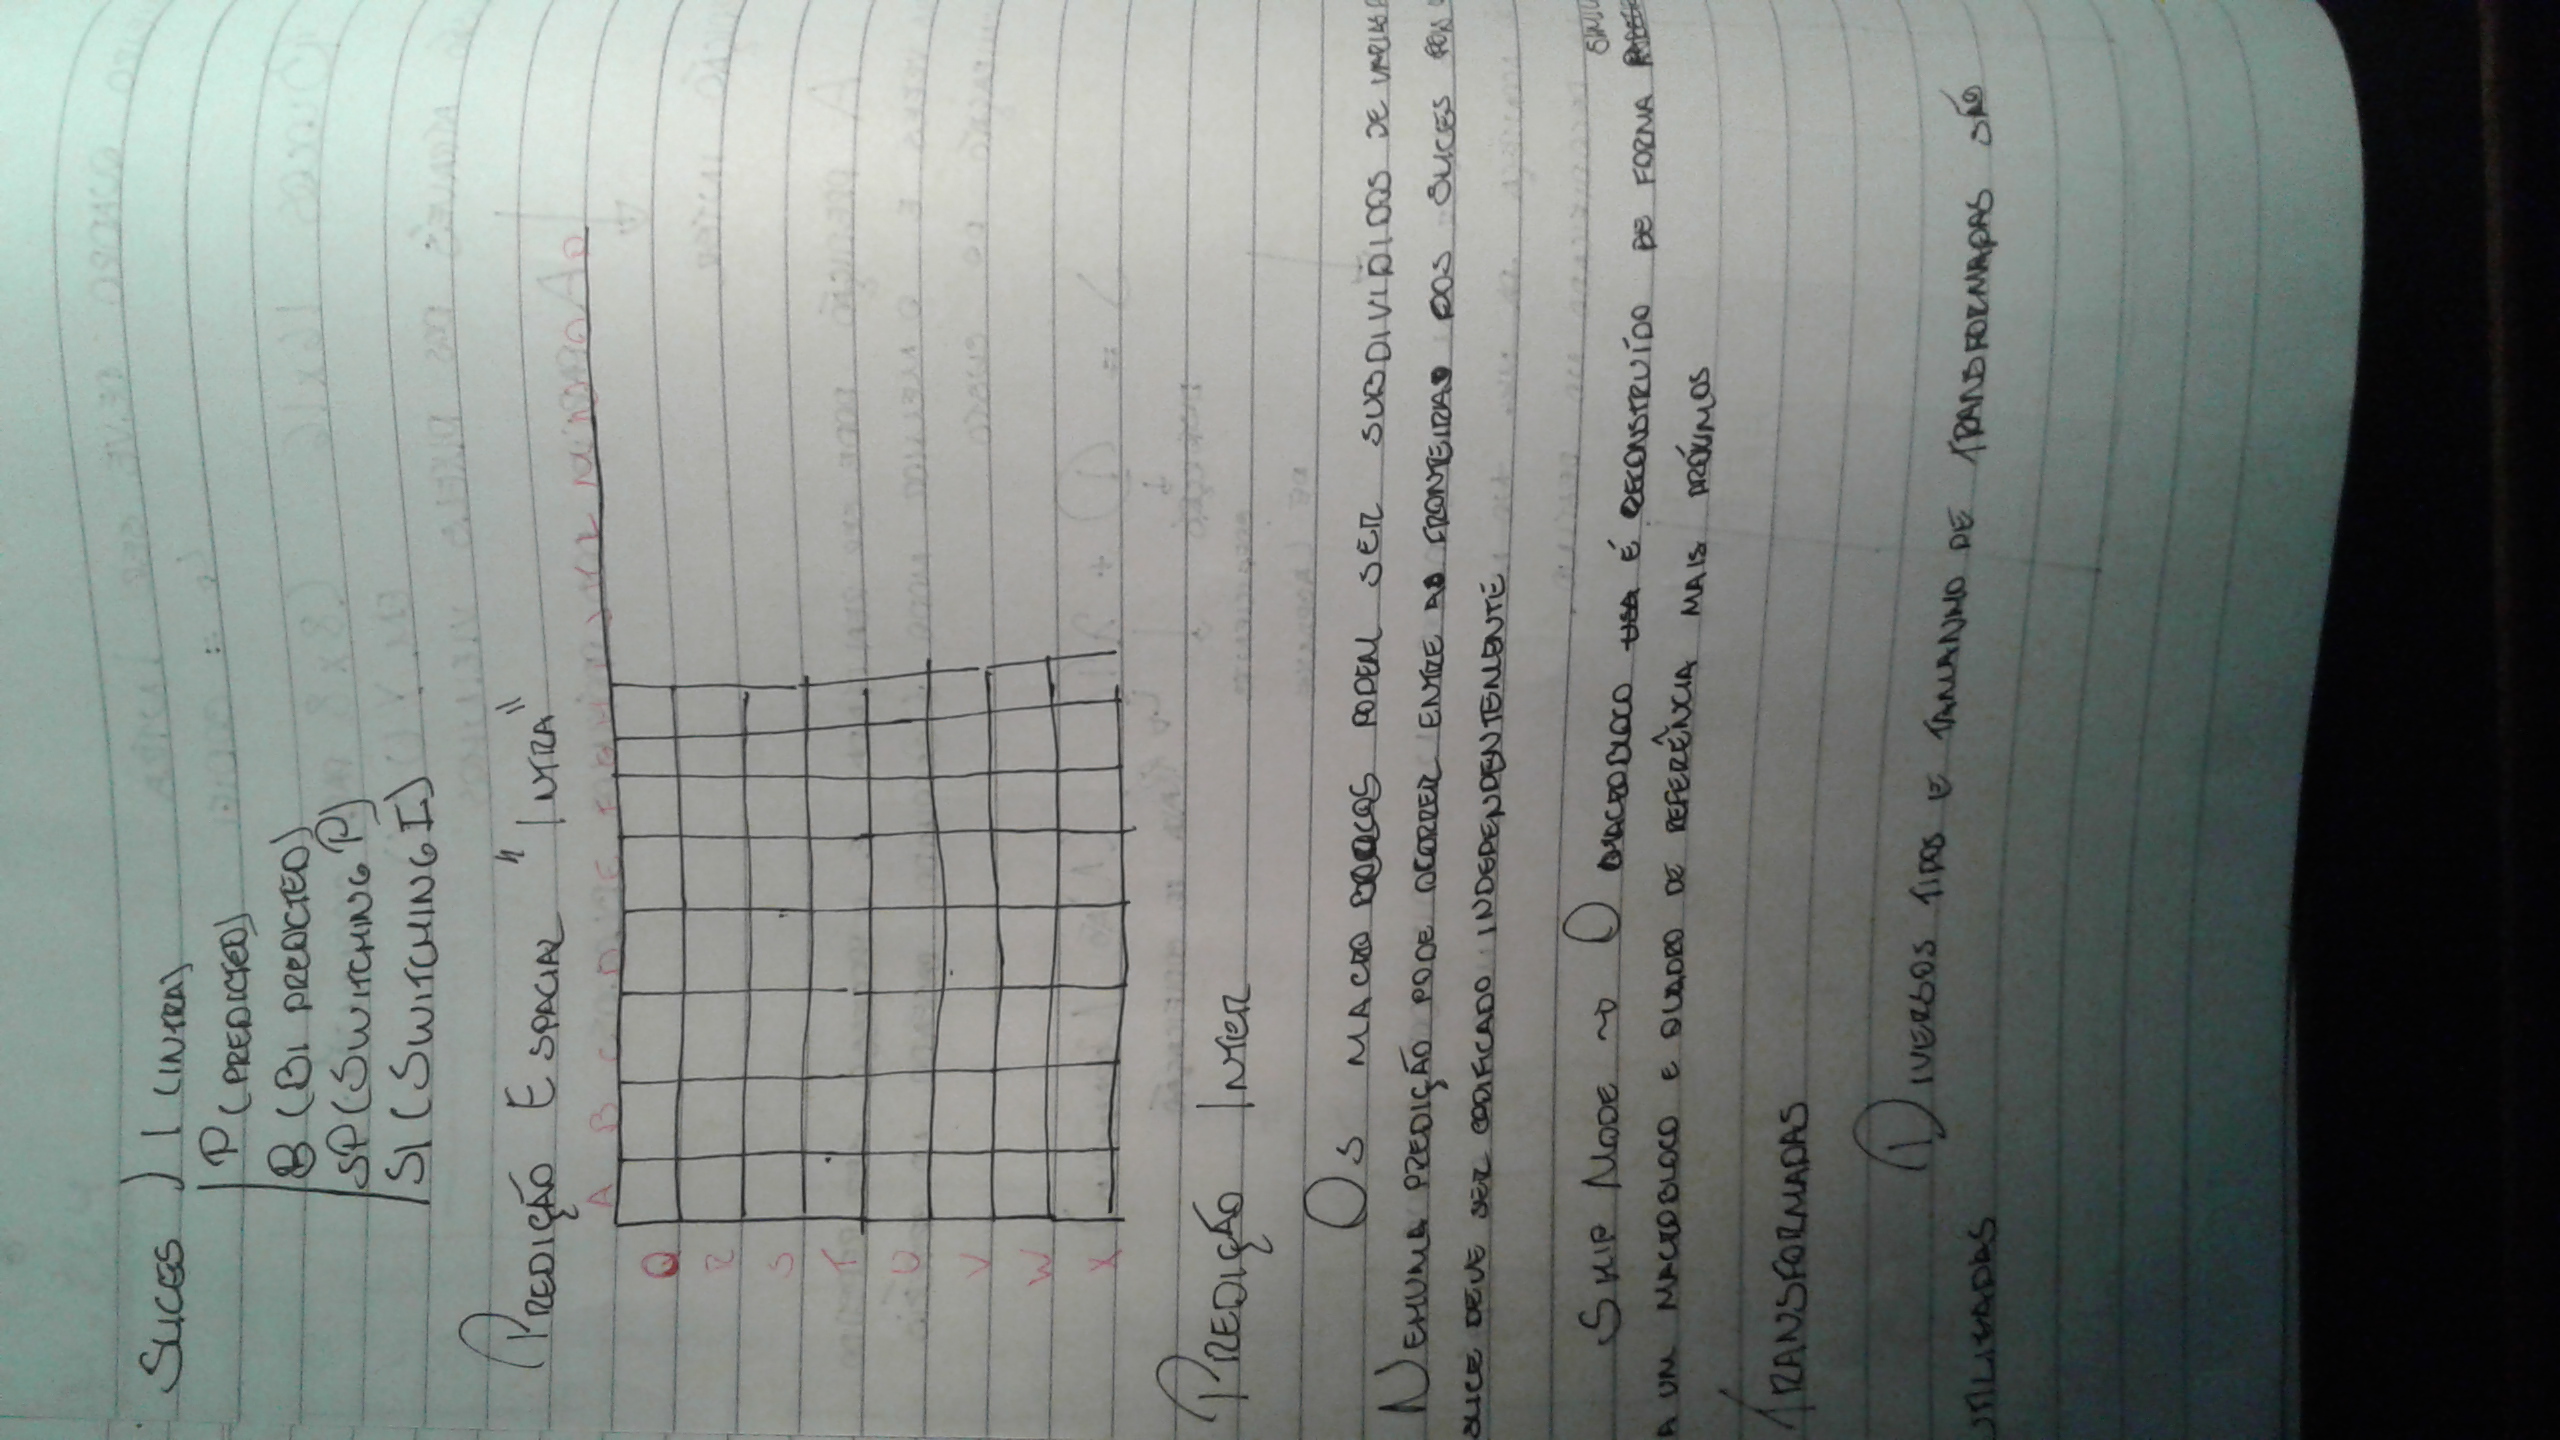 SLICES I (INTRA)
P (PREDICTED)
B (BI PREDICTED)
SP (SWITCHING P)
SI (SWITCHING I)
PREDIÇÃO ESPACIAL "INTRA"
A B C D E F G H I J K L M N O P
Q
R
S
T
U
V
W
X
PREDIÇÃO INTER
OS MACRO BLOCOS PODEM SER SUBDIVIDIDOS DE VARIAS
NENHUMA PREDIÇÃO PODE OCORRER ENTRE AS FRONTEIRAS DOS SLICES
SLICE DEVE SER CODIFICADO INDEPENDENTEMENTE
SKIP MODE → O MACROBLOCO USA É RECONSTRUÍDO DE FORMA
A UM MACROBLOCO E QUADRO DE REFERÊNCIA MAIS PRÓXIMOS
TRANSFORMADAS
DIVERSOS TIPOS E TAMANHO DE TRANSFORMADAS SÃO
UTILIZADAS